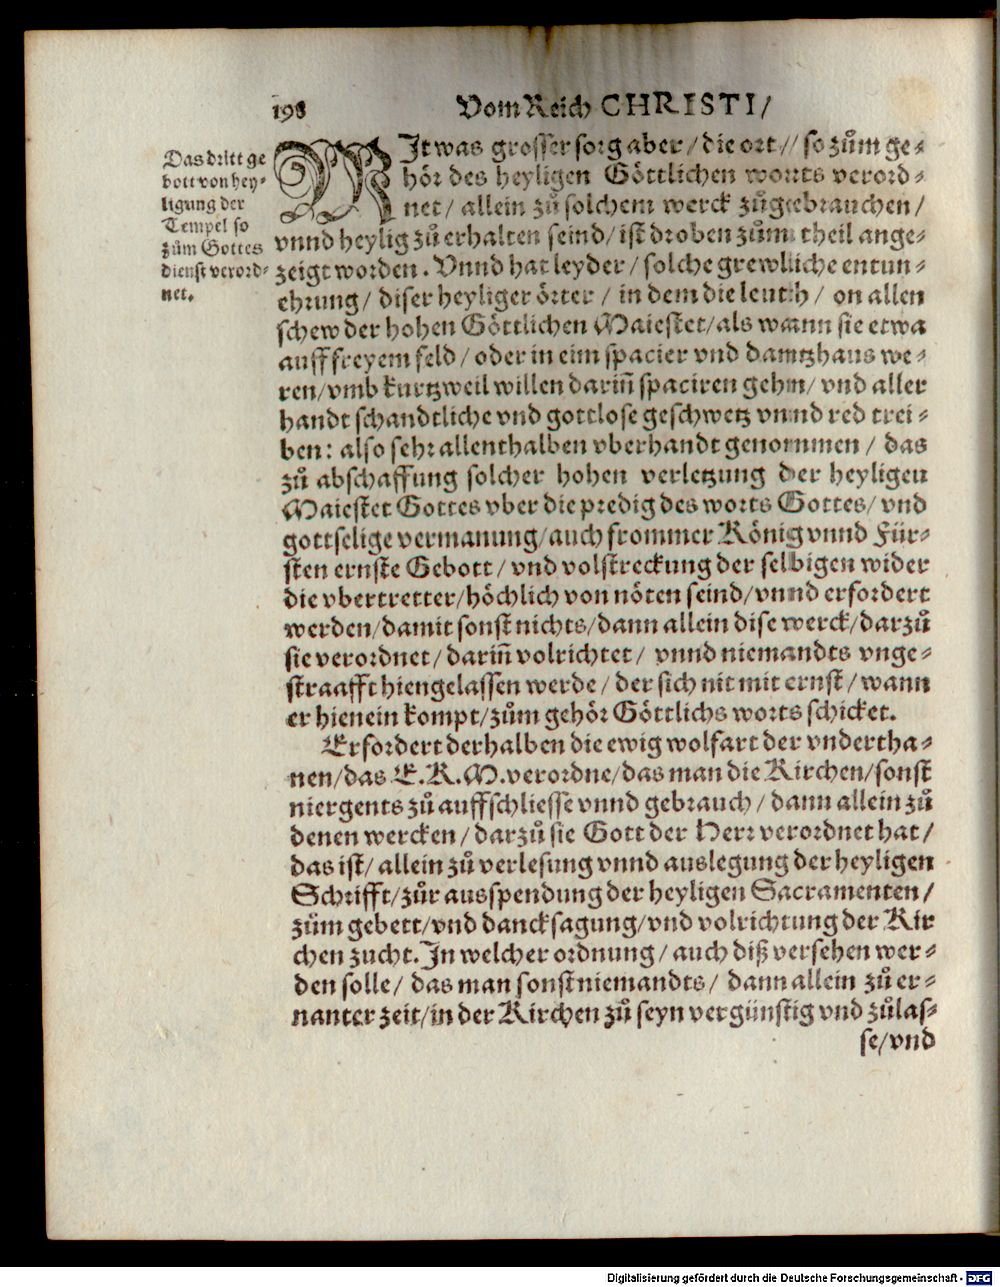 198 Vom Reich CHRISTI/
Das dritt ge
bott von hey-
ligung der
Tempel so
zům Gottes
dienst verord-
net.
MIt was grosser sorg aber/ die ort// so zům ge-
hör des heyligen Göttlichen worts verord-
net/ allein zů solchem werck zůgebrauchen/
vnnd heylig zů erhalten seind/ ist droben zům theil ange-
zeigt worden. Vnnd hat leyder/ solche grewliche entun-
ehrung/ diser heyliger örter/ in dem die leuth/ on allen
schew der hohen Göttlichen Maiestet/ als wann sie etwa
auff freyem feld/ oder in eim spacier vnd dantzhaus we-
ren/ vmb kurtzweil willen dariñ spaciren gehn/ vnd aller
handt schandtliche vnd gottlose geschwetz vnnd red trei-
ben: also sehr allenthalben vberhandt genommen/ das
zů abschaffung solcher hohen verletzung der heyligen
Maiestet Gottes vber die predig des worts Gottes/ vnd
gottselige vermanung/ auch frommer König vnnd Für-
sten ernste Gebott/ vnd volstreckung der selbigen wider
die vbertretter/ höchlich von nöten seind/ vnnd erfordert
werden/ damit sonst nichts/ dann allein dise werck/ darzů
sie verordnet/ dariñ volrichtet/ vnnd niemandts vnge-
straafft hiengelassen werde/ der sich nit mit ernst/ wann
er hienein kompt/ zům gehör Göttlichs worts schicket.
Erfordert derhalben die ewig wolfart der vndertha-
nen/ das E. K. M. verordne/ das man die Kirchen/ sonst
niergents zů auffschliesse vnnd gebrauch/ dann allein zů
denen wercken/ darzů sie Gott der Herr verordnet hat/
das ist/ allein zů verlesung vnnd auslegung der heyligen
Schrifft/ zůr ausspendung der heyligen Sacramenten/
zům gebett/ vnd dancksagung/ vnd volrichtung der Kir
chen zucht. In welcher ordnung/ auch diß versehen wer-
den solle/ das man sonst niemandts/ dann allein zů er-
nanter zeit/ in der Kirchen zů seyn vergünstig vnd zůlas-
se/ vnd
Digitalisierung gefördert durch die Deutsche Forschungsgemeinschaft - DFG